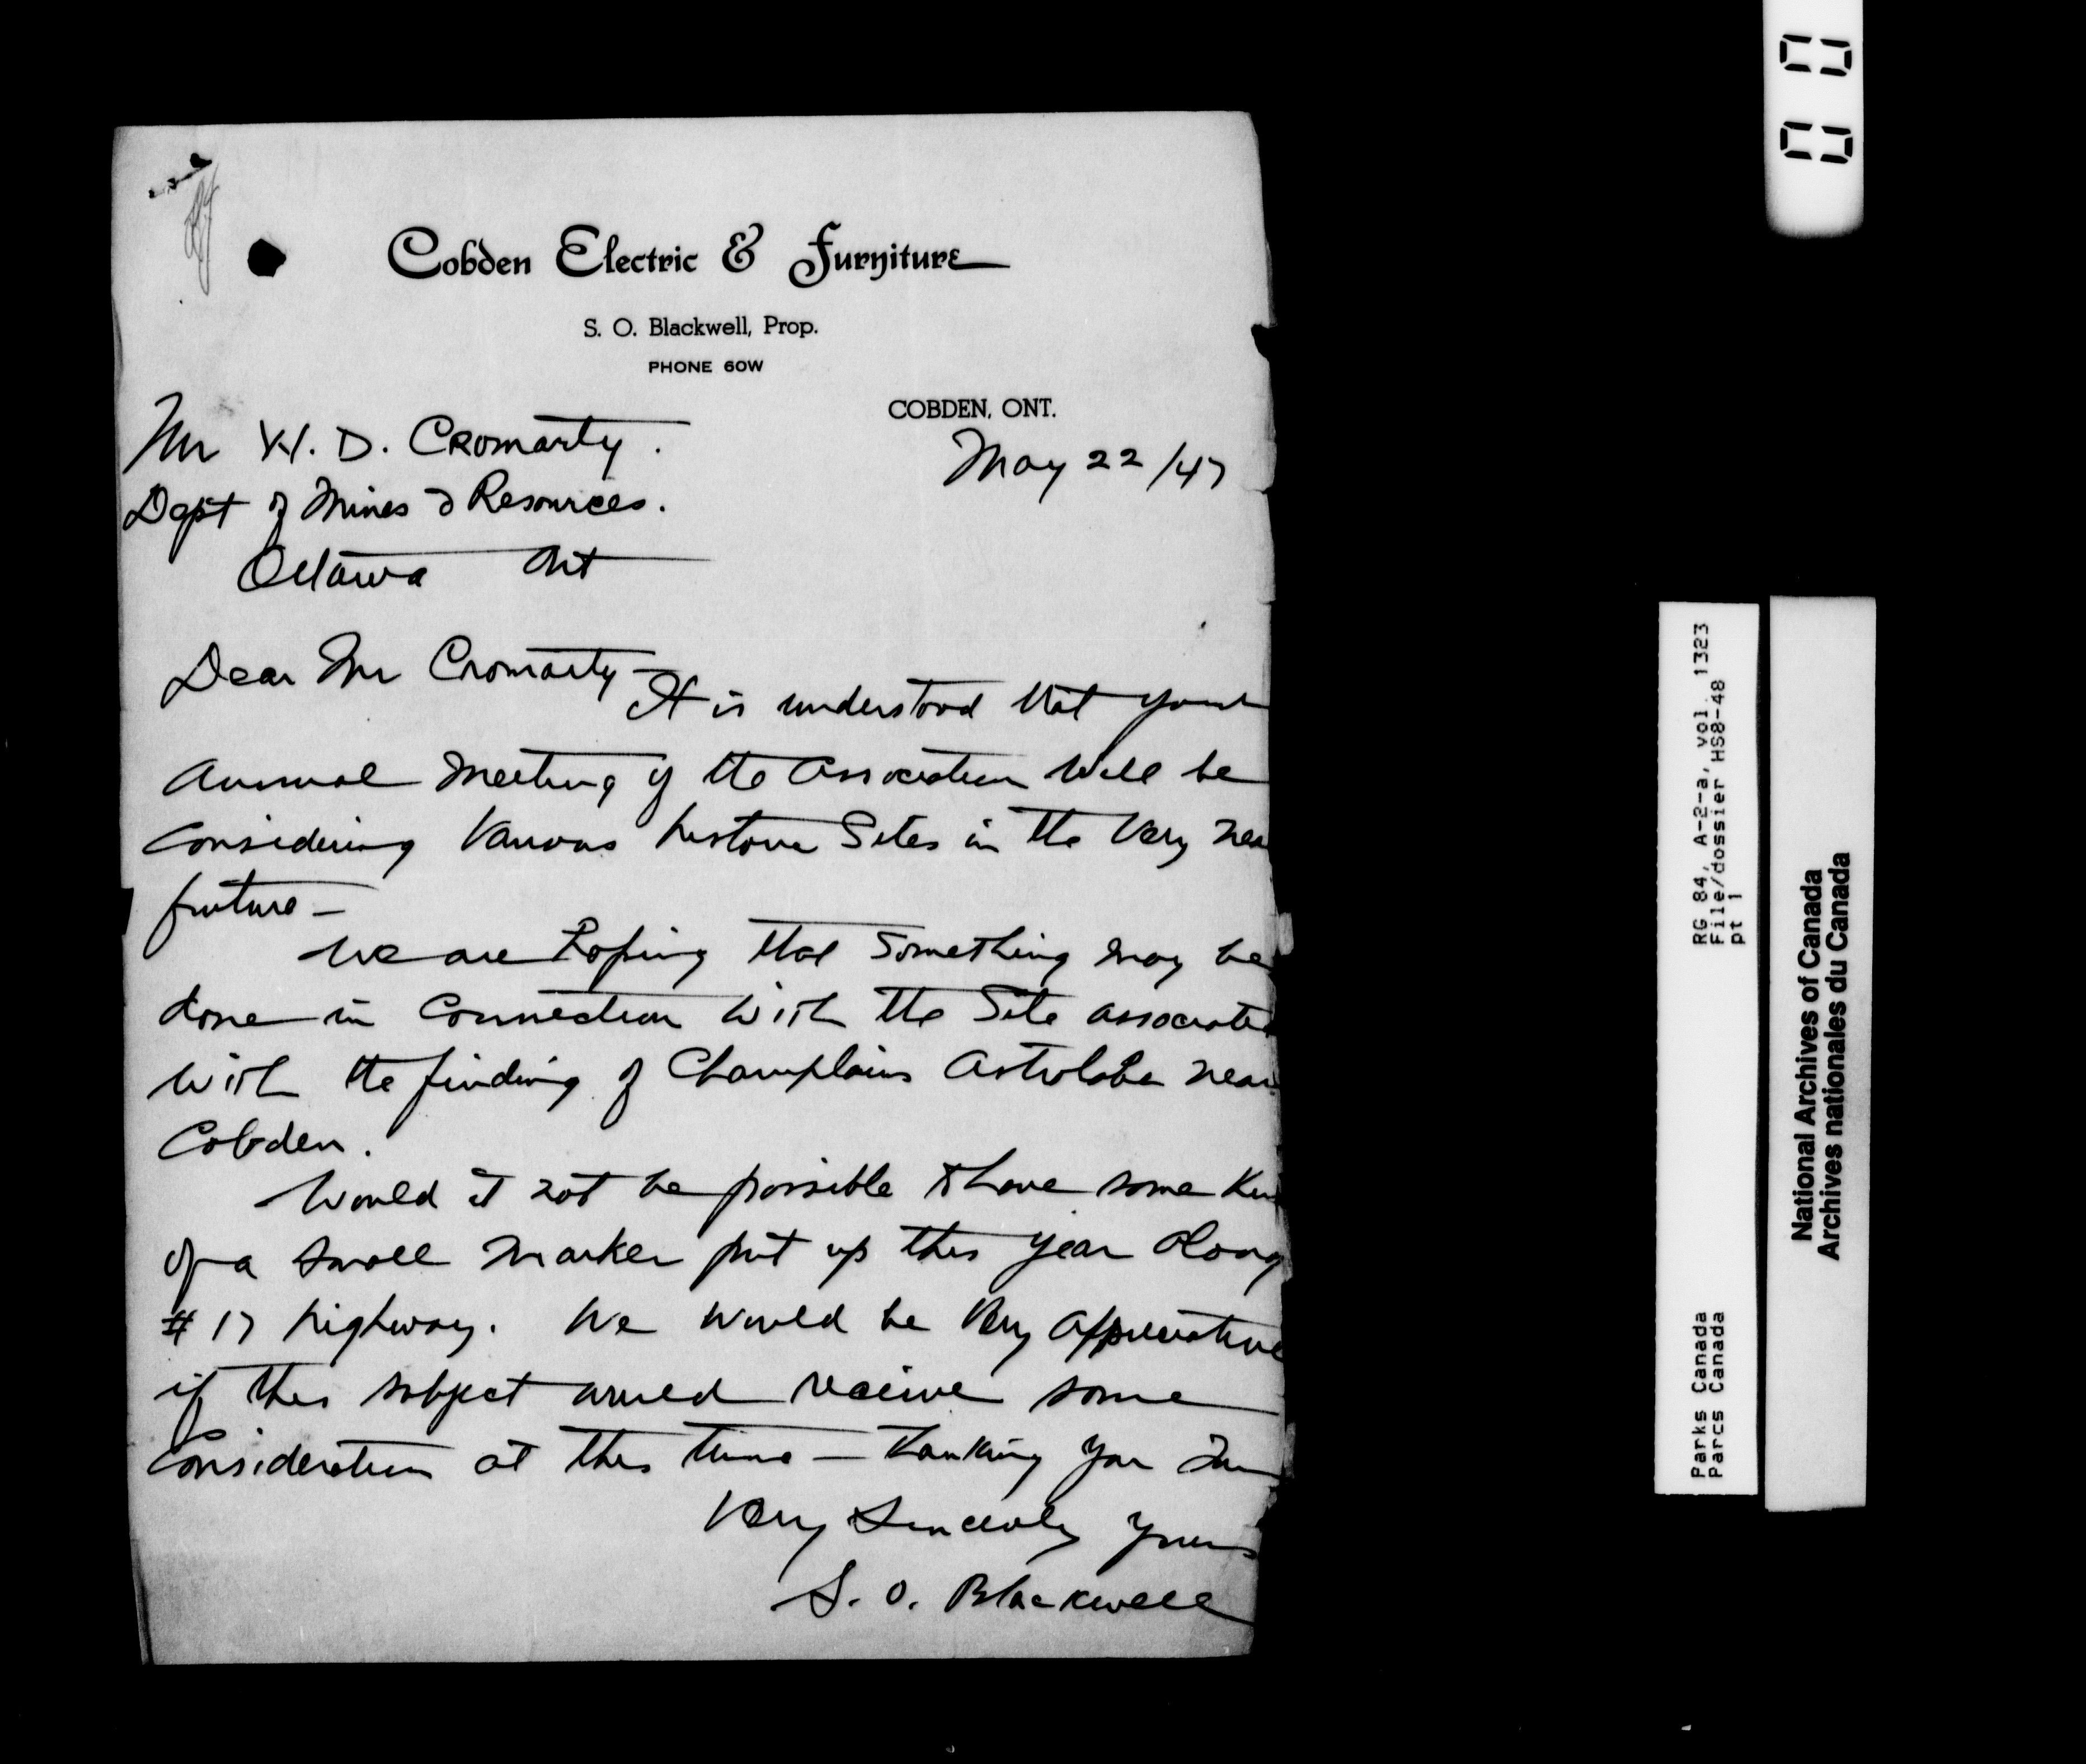 Cobden Electric & Furniture
S. O. Blackwell, Prop.
PHONE 60W
COBDEN, ONT.
May 22/47
Mr H. D. Cromarty.
Dept of Mines & Resources.
Ottawa Ont
Dear Mr Cromarty—
It is understood that your
Annual Meeting of the Association will be
Considering Various historic Sites in the Very near
future—
We are hoping that something may be
done in Connection with the Site associated
with the finding of Champlains Astrolabe near
Cobden.
Would it not be possible to have some kin
of a small marker put up this year along
# 17 highway. We would be Very appreciative
if this subject would receive some
Consideration at this time — thanking you
Very Sincerely Yours
S. O. Blackwell
RG 84, A-2-a, vol. 1323
File/dossier HS8-48
pt 1
Parks Canada
Parcs Canada
National Archives of Canada
Archives nationales du Canada